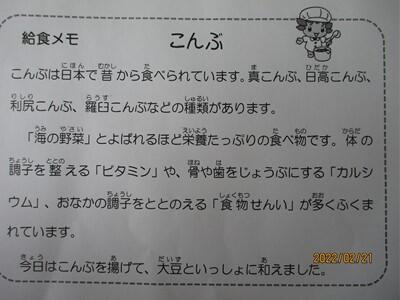 給食メモ こんぶ
こんぶは日本で昔から食べられています。真こんぶ、日高こんぶ、
利尻こんぶ、羅臼こんぶなどの種類があります。
「海の野菜」とよばれるほど栄養たっぷりの食べ物です。体の
調子を整える「ビタミン」や、骨や歯をじょうぶにする「カルシ
ウム」、おなかの調子をととのえる「食物せんい」が多くふくま
れています。
今日はこんぶを揚げて、大豆といっしょに和えました。
2022/02/21